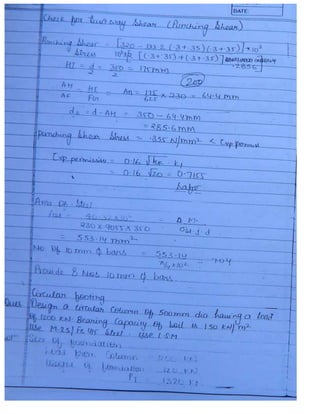 DATE:
Check for two way Shear (Punching Shear)
Punching Shear = [320 - 133.2 (.3+.35)(.3+.35)] × 10³
Stress 10³×2 [(.3+.35)+(.3+.35)]
.2856
HI = d/2 = 350/2 = 175mm
200
AH/AF = HI/FG = AH = 175/625 × 230 = 64.4 mm
d₂ = d - AH = 350 - 64.4mm
= 285.6mm
punching Shear Stress = .355 N/mm² <
permissive = 0.16 √ k₁
= 0.16 √20 = 0.7155
Safe
Area of Steel
=
230 × .9055 × 350
= 553.14 mm²
No of 10mm ϕ bars = 553.14 = 7.04
π/4 × 10²
Provide 8 Nos 10mm ϕ bars.
Circular footing
Ques Design a circular Column of 500mm dia having a load
of 1200 KN. Bearing Capacity of Soil is 150 KN/m²
use M-25/Fe 415 Steel. Use LSM
Size of foundation
Load from Column = 1200 KN
Weight of foundation = 120 KN
PT = 1320 KN